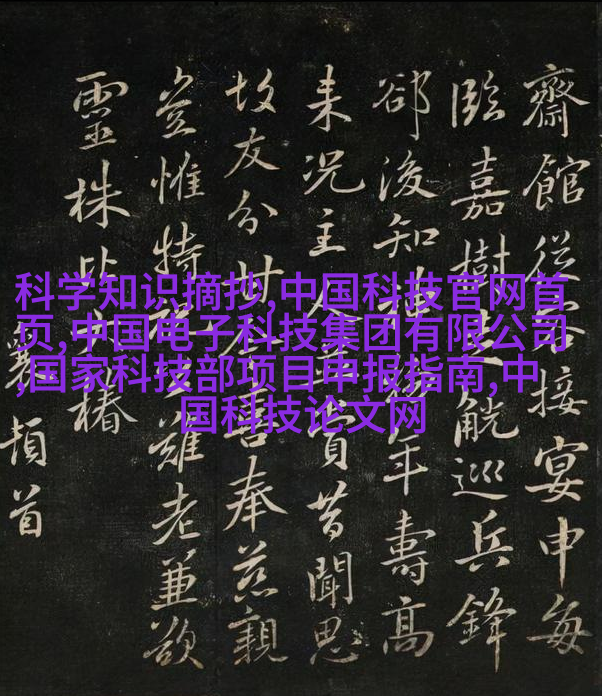 科学知识摘抄,中国科技官网首
页,中国电子科技集团有限公司
,国家科技部项目申报指南,中
国科技论文网
齋館從容接宴申每
臨嘉樹觥巡兵鋒
郤後知年壽高
来況主人昔聞思
故友分奉慈親
惟特難老兼欲
靈株比椿
襄頓首